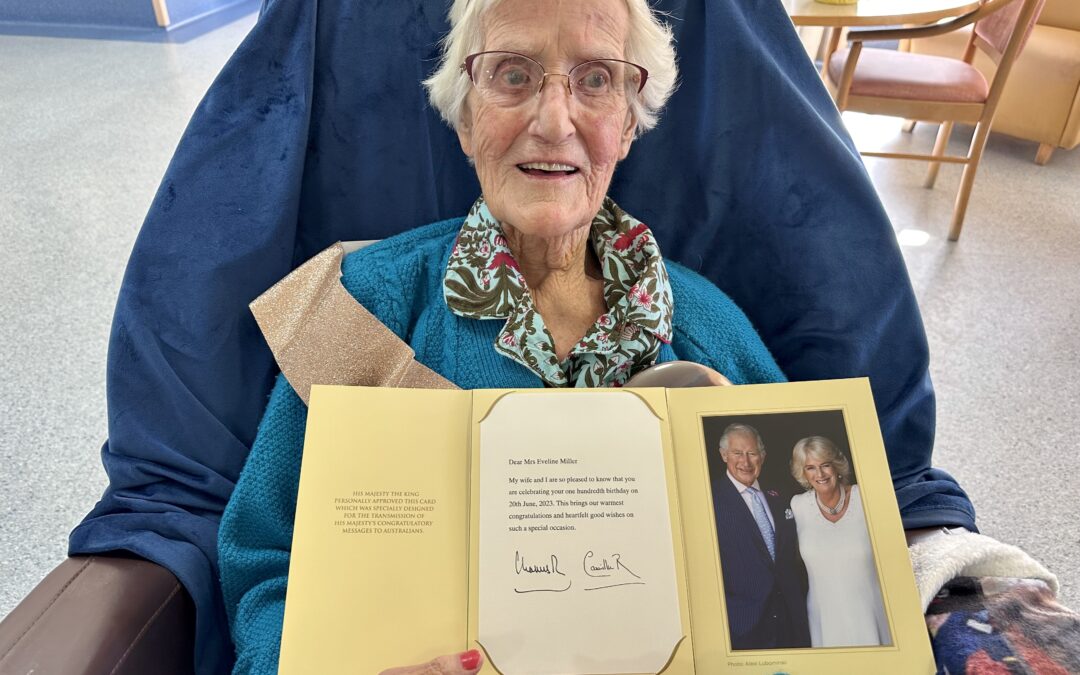 HIS MAJESTY THE KING
PERSONALLY APPROVED THIS CARD
WHICH WAS SPECIALLY DESIGNED
FOR THE TRANSMISSION OF
HIS MAJESTY'S CONGRATULATORY
MESSAGES TO AUSTRALIANS.
Dear Mrs Eveline Miller
My wife and I are so pleased to know that you
are celebrating your one hundredth birthday on
20th June, 2023. This brings our warmest
congratulations and heartfelt good wishes on
such a special occasion.
Charles R Camilla R
Photo: Alexi Lubomirski